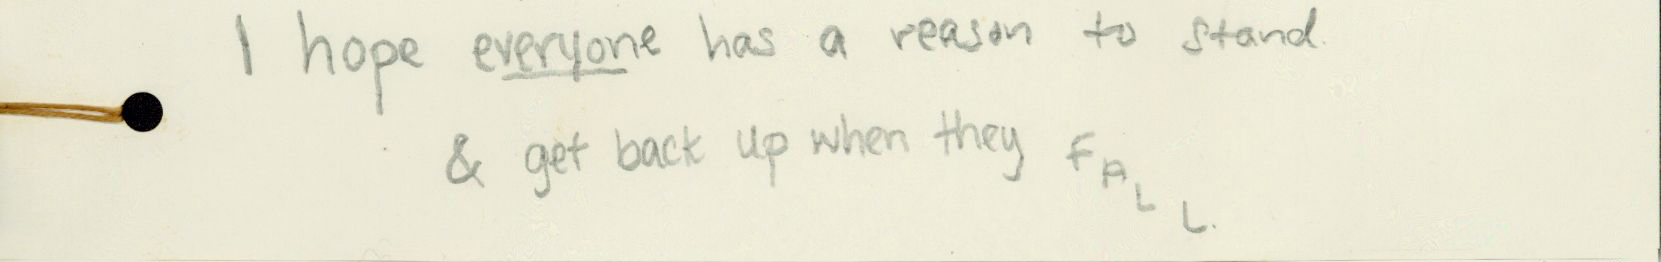 I hope everyone has a reason to stand.
& get back up when they FALL.